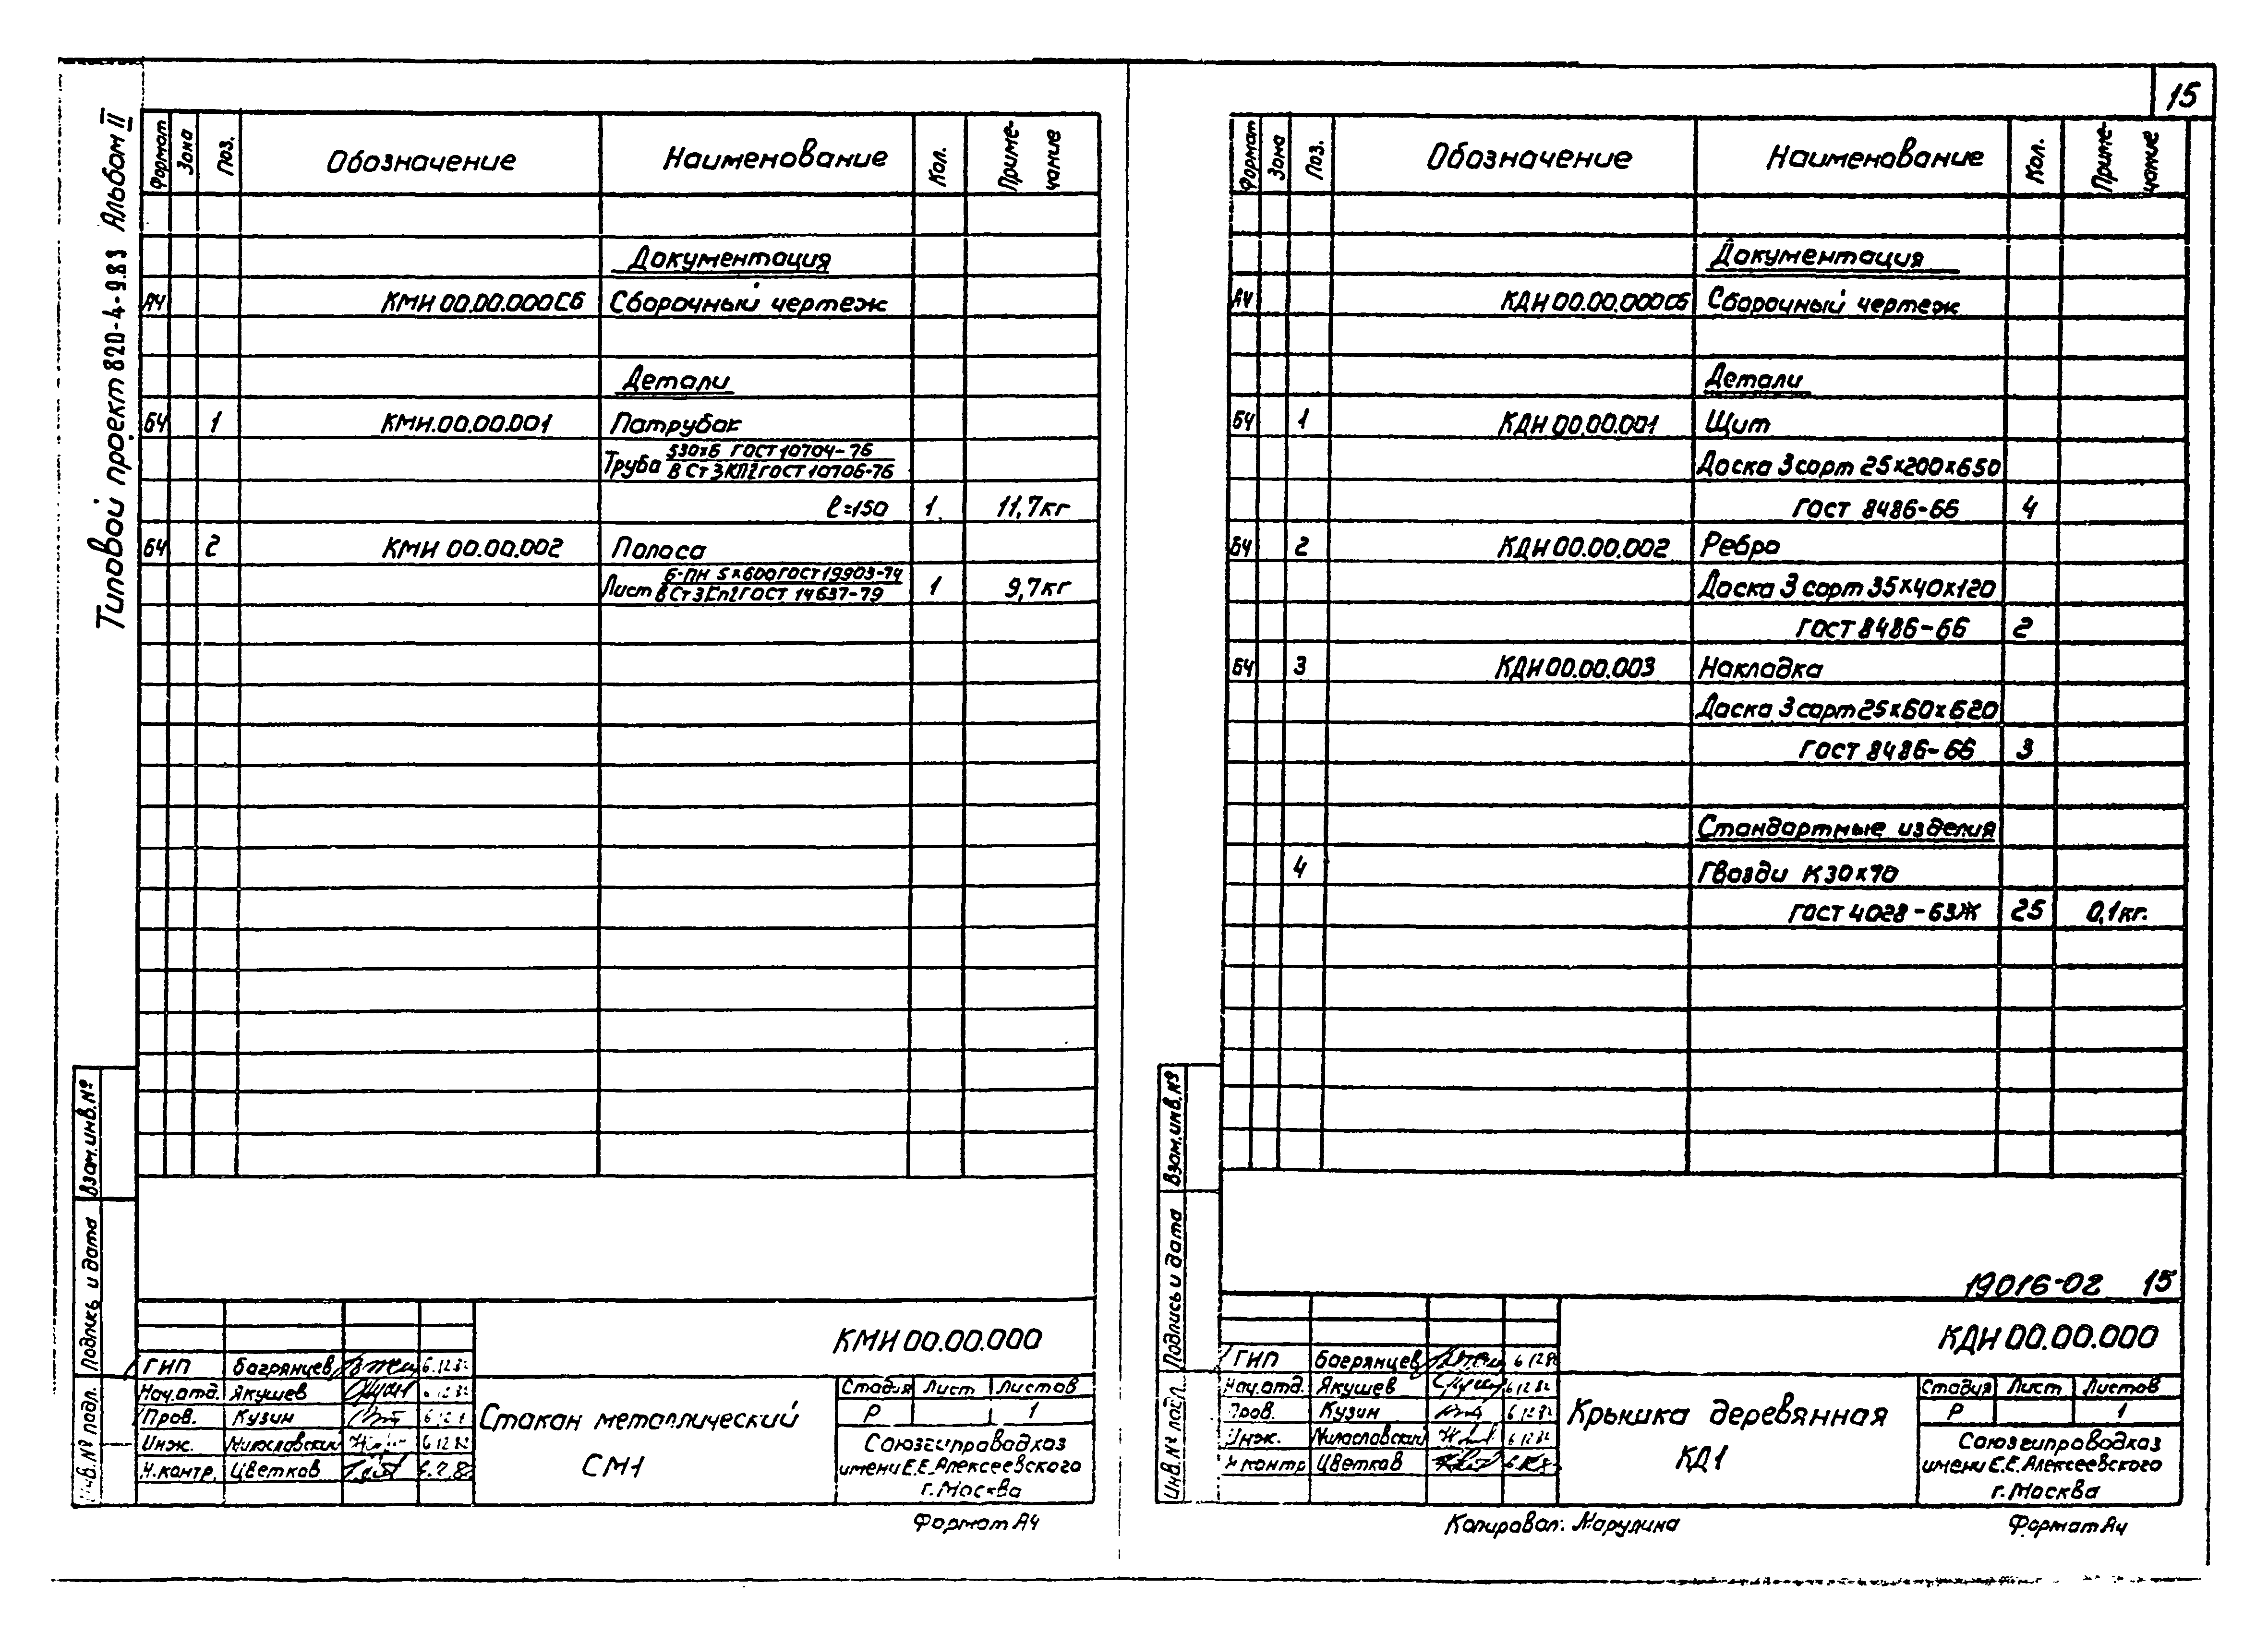 Типовой проект 820-4-9.83 Альбом II
Формат Зона Поз. Обозначение Наименование Кол. Приме-
чание
Документация
А4 КМН 00.00.000СБ Сборочный чертеж
Детали
БЧ 1 КМН.00.00.001 Патрубок
Труба 530х6 ГОСТ 10704-76
В Ст 3 КП2 ГОСТ 10706-76
ℓ=150 1 11,7кг
БЧ 2 КМН 00.00.002 Полоса
Лист Б-ПН 5х600 ГОСТ 19903-74
В Ст 3 Кп2 ГОСТ 14637-79 1 9,7кг
Взам.инв.№
Подпись и дата
Инв.№ подл.
КМН 00.00.000
ГИП Багрянцев 6.12.82
Нач.отд. Якушев
Пров. Кузин
Инж. Милославский 6 12 82
Н.контр. Цветков
Стакан металлический
СМ1
Стадия Лист Листов
Р 1
Союзгипроводхоз
имени Е.Е.Алексеевского
г.Москва
Формат А4
15
Формат Зона Поз. Обозначение Наименование Кол. Приме-
чание
Документация
А4 КДН 00.00.000СБ Сборочный чертеж
Детали
БЧ 1 КДН 00.00.001 Щит
Доска 3 сорт 25х200х650
ГОСТ 8486-66 4
БЧ 2 КДН 00.00.002 Ребро
Доска 3 сорт 35х40х120
ГОСТ 8486-66 2
БЧ 3 КДН 00.00.003 Накладка
Доска 3 сорт 25х60х620
ГОСТ 8486-66 3
Стандартные изделия
4 Гвозди К30х70
ГОСТ 4028-63Ж 25 0,1кг.
Взам.инв.№
Подпись и дата
Инв.№ подл.
19016-02 15
КДН 00.00.000
ГИП Багрянцев 6 12 82
Нач.отд. Якушев 6 12 82
Пров. Кузин 6 12 82
Инж. Милославский 6 12 82
Н.контр Цветков
Крышка деревянная
КД1
Стадия Лист Листов
Р 1
Союзгипроводхоз
имени Е.Е.Алексеевского
г.Москва
Копировал: Марулина
Формат А4